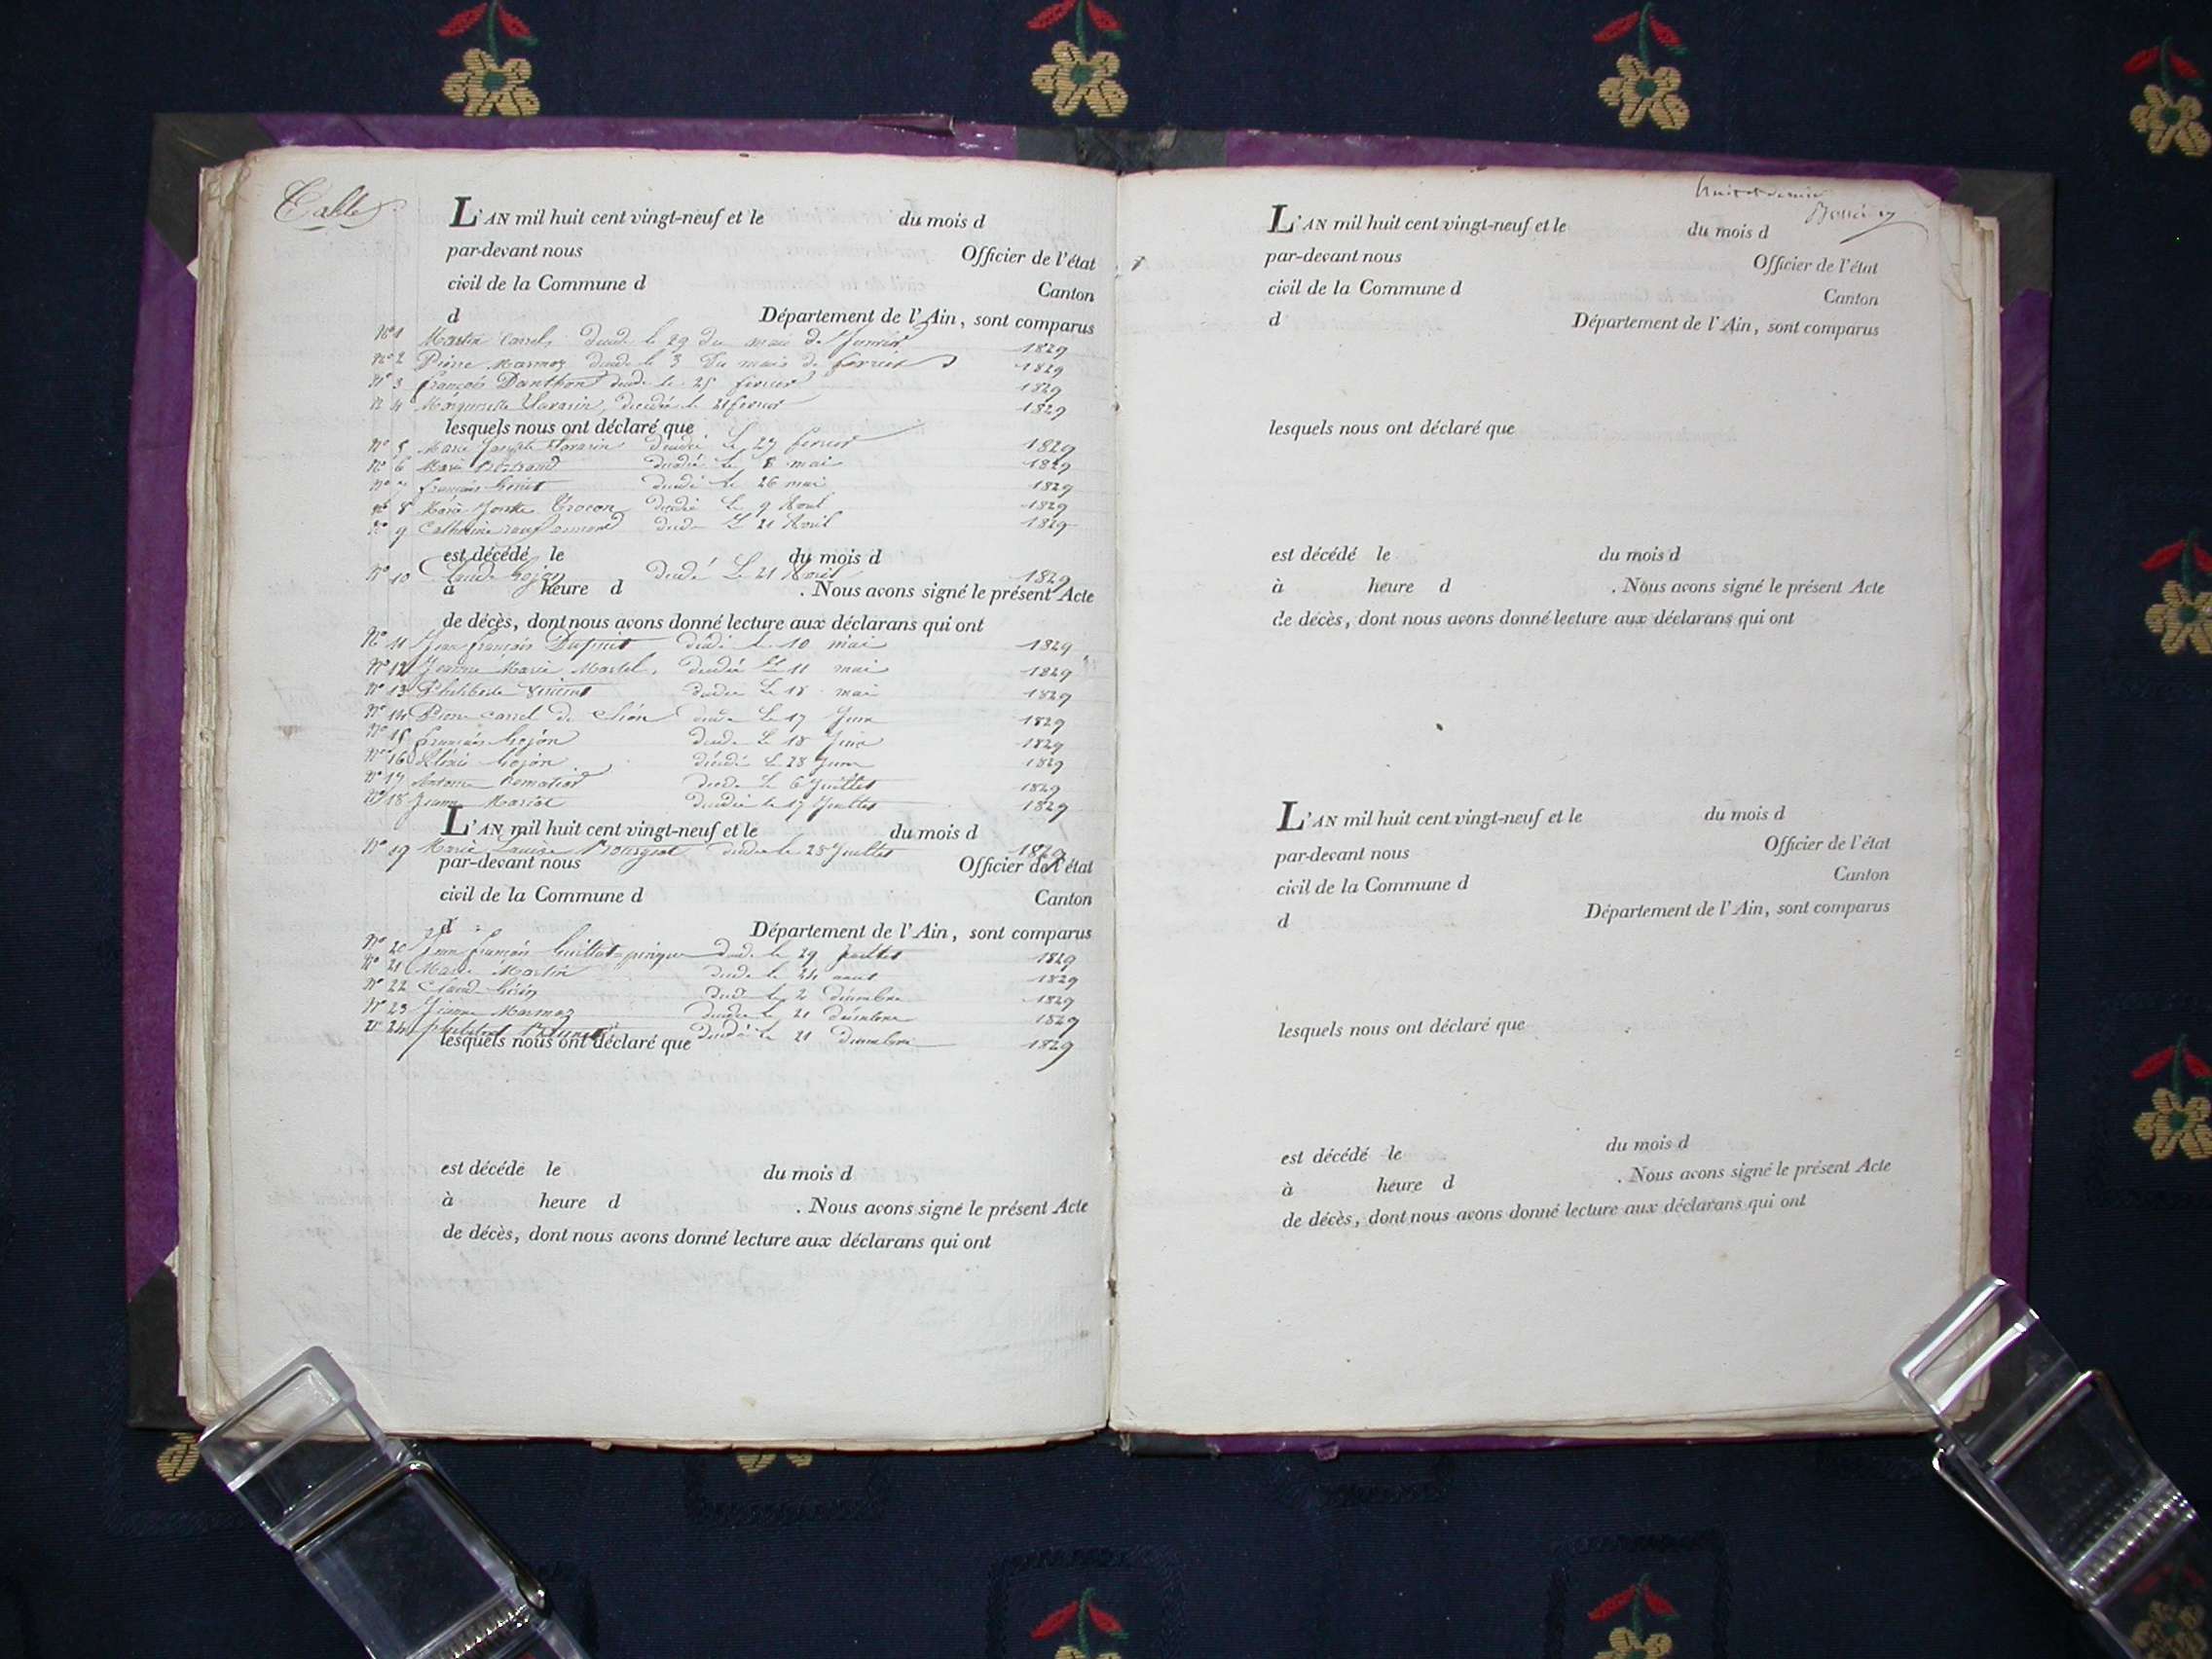 Table
L'AN mil huit cent vingt-neuf et le du mois d
par-devant nous Officier de l'état
civil de la Commune d Canton
d Département de l'Ain, sont comparus
N° 1 Martin Carrel du mois de 1829
N° 2 Pierre Marmoz le 3 Du mois de 1829
N° 3 François Danthon le 25 fevrier 1829
N° 4 Marguerite Savarin, decedée le 21 fevrier 1829
lesquels nous ont déclaré que
N° 5 Marie Josephte Savarin Le 27 fevrier 1829
N° 6 Marie Bertrand Le 8 mai 1829
N° 7 François Le 26 mai 1829
N° 8 Marie Le 9 Avril 1829
N° 9 Catherine Le 21 Avril 1829
est décédé le du mois d
N° 10 Claude Gojon Le 21 Avril 1829
à heure d . Nous avons signé le présent Acte
de décès, dont nous avons donné lecture aux déclarans qui ont
N° 11 Jean françois Dupuit Le 10 mai 1829
N° 12 Jeanne Marie Martel, Le 11 mai 1829
N° 13 Philiberte Le 18 mai 1829
N° 14 Pierre Carrel de Le 17 Juin 1829
N° 15 François Gojon Le 18 Juin 1829
N° 16 Gojon Le 28 Juin 1829
N° 17 Antoine Le 6 Juillet 1829
N° 18 Jeanne le 17 Juillet 1829
L'AN mil huit cent vingt-neuf et le du mois d
N° 19 Marie Louise le 28 Juillet 1829
par-devant nous Officier de l'état
civil de la Commune d Canton
d Département de l'Ain, sont comparus
N° 20 Jean françois le 29 Juillet 1829
N° 21 Marie Martin le 24 aout 1829
N° 22 Claude le 2 décembre 1829
N° 23 Jeanne Marmoz le 21 décembre 1829
N° 24 Philibert le 21 décembre 1829
lesquels nous ont déclaré que
est décédé le du mois d
à heure d . Nous avons signé le présent Acte
de décès, dont nous avons donné lecture aux déclarans qui ont
L'AN mil huit cent vingt-neuf et le du mois d
par-devant nous Officier de l'état
civil de la Commune d Canton
d Département de l'Ain, sont comparus
lesquels nous ont déclaré que
est décédé le du mois d
à heure d . Nous avons signé le présent Acte
de décès, dont nous avons donné lecture aux déclarans qui ont
L'AN mil huit cent vingt-neuf et le du mois d
par-devant nous Officier de l'état
civil de la Commune d Canton
d Département de l'Ain, sont comparus
lesquels nous ont déclaré que
est décédé le du mois d
à heure d . Nous avons signé le présent Acte
de décès, dont nous avons donné lecture aux déclarans qui ont